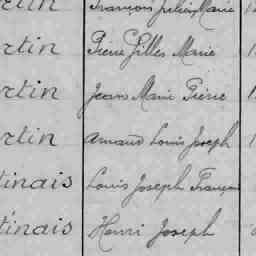 François Julien Marie
rtin Pierre Gilles Marie
rtin Jean Marie Pierre
rtin Arnaud Louis Joseph
tinais Louis Joseph François
tinais Henri Joseph